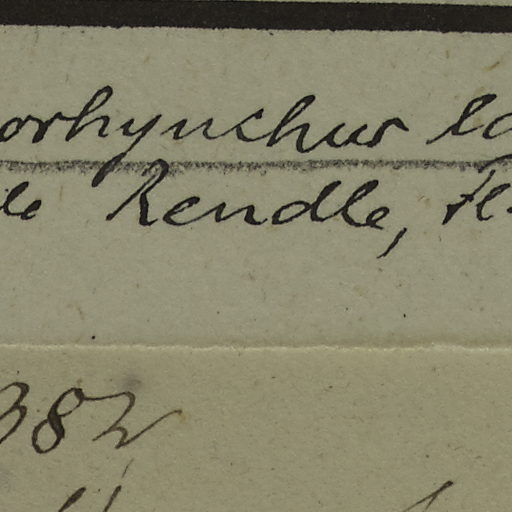 orhynchus la
de Rendle, Fl.
382